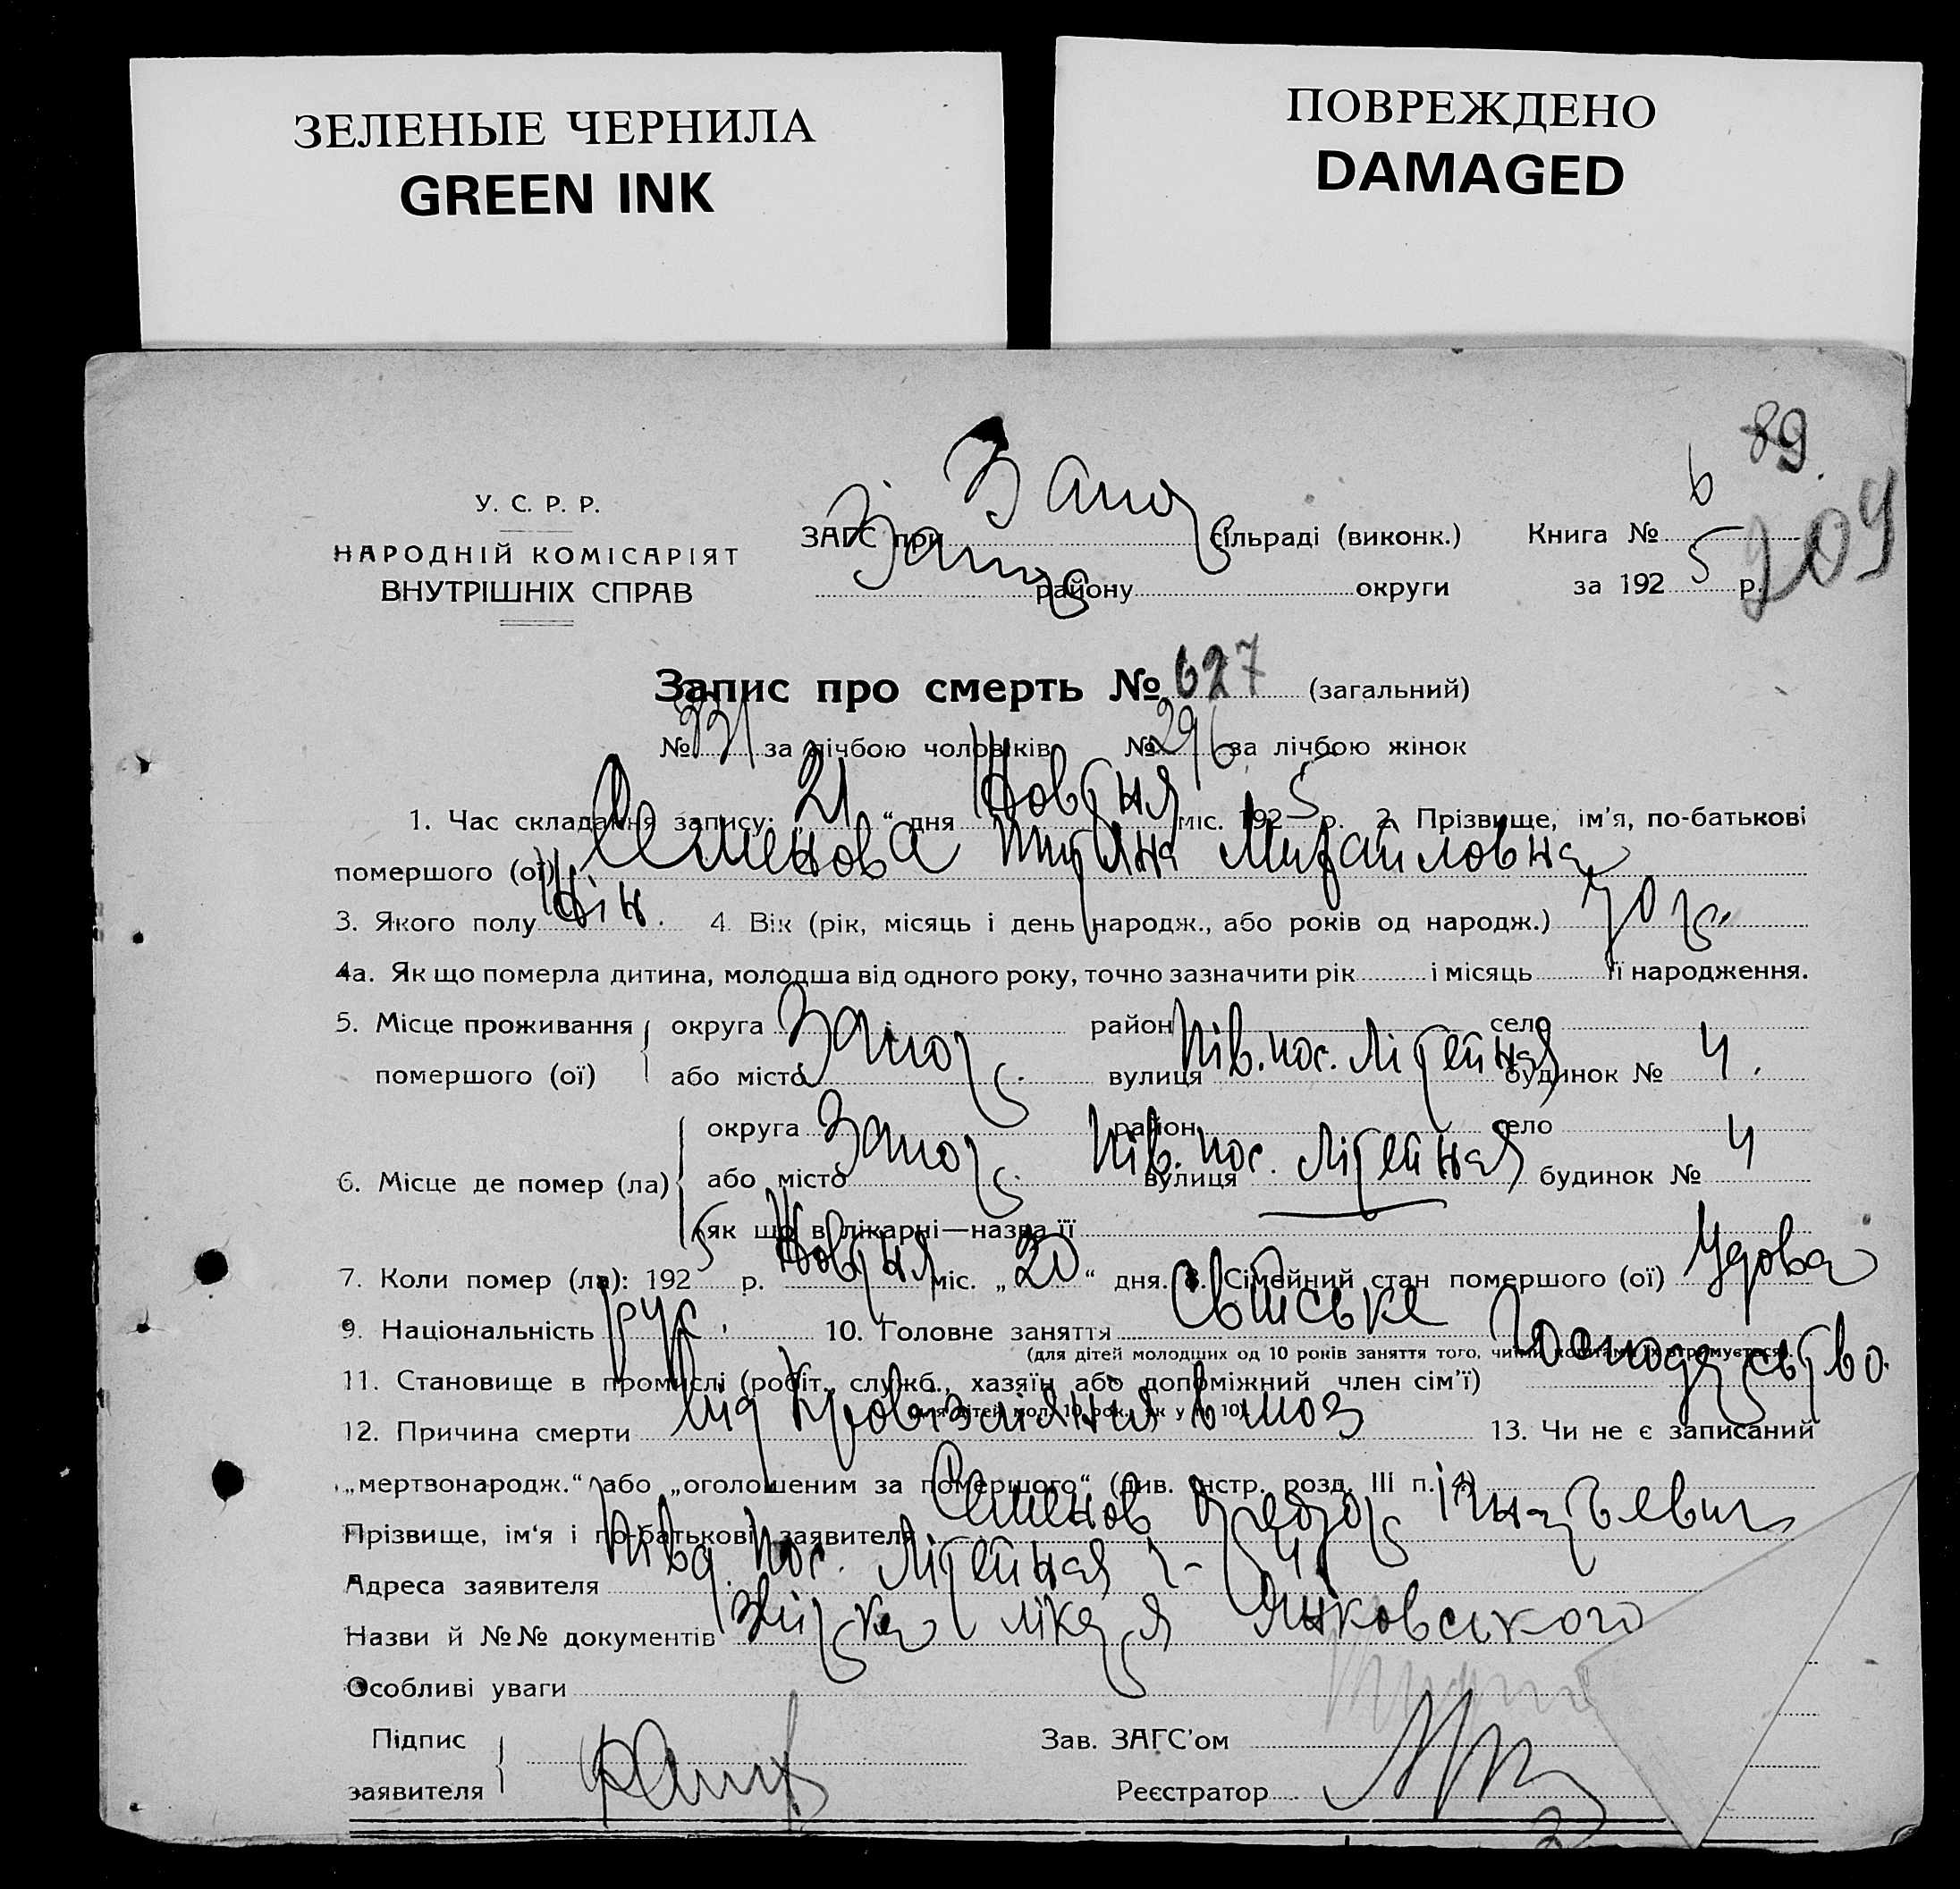 ЗЕЛЕНЫЕ ЧЕРНИЛА
GREEN INK
ПОВРЕЖДЕНО
DAMAGED
89.
209
У. С. Р. Р.
НАРОДНІЙ КОМІСАРІЯТ
ВНУТРІШНІХ СПРАВ
ЗАГС при Запор сільраді (виконк.) Книга № 6
Запор району округи за 1925 р.
Запис про смерть № 627 (загальний)
№ 331 за лічбою чоловіків № 296 за лічбою жінок
1. Час складання запису: „21“ дня Жовтня міс. 1925 р. 2. Прізвище, ім'я, по-батькові
помершого (ої) Семенова Тит'яна Михайловна
3. Якого полу Жін. 4. Вік (рік, місяць і день народж., або років од народж.) 70 р.
4а. Як що померла дитина, молодша від одного року, точно зазначити рік і місяць її народження.
5. Місце проживання округа район село
помершого (ої) або місто Запор. вулиця Пів. пос. Літейная будинок № 4.
округа район село
6. Місце де помер (ла) або місто Запор. вулиця Пів. пос. Літейная будинок № 4
як що в лікарні—назва її
7. Коли помер (ла): 1925 р. Жовтня міс. „20“ дня. 8. Сімейний стан помершого (ої) Удова
9. Національність рус. 10. Головне заняття Світське Господарство.
(для дітей молодших од 10 років заняття того, чиїми коштами їх утримується).
11. Становище в промислі (робіт., служб., хазяїн або допоміжний член сім'ї)
(для дітей мол. 10 рок. як у п. 10)
12. Причина смерти Від кровізліяния в моз 13. Чи не є записаний
„мертвонародж.“ або „оголошеним за помершого“ (див. інстр. розд. III п. 4)
Прізвище, ім'я і по-батькові заявителя Семенов Федор Ігнатьевич
Адреса заявителя Півд. пос. Літейная ч. 4
Назви й №№ документів Звірка лікаря Янковського
Особливі уваги
Підпис Зав. ЗАГС'ом
заявителя Реєстратор